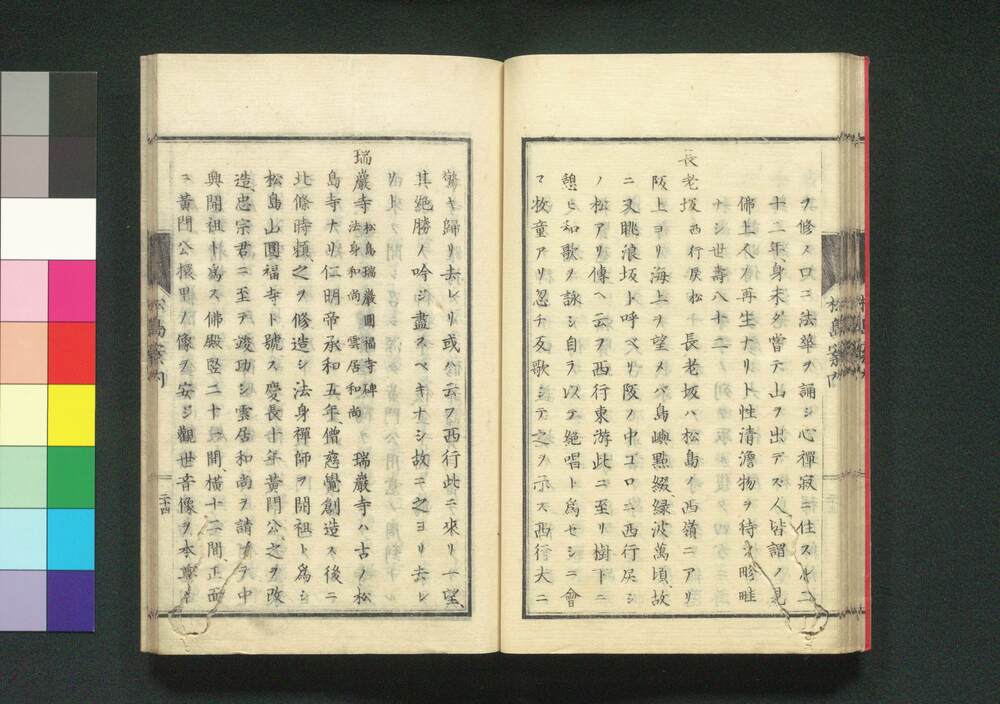 ヲ修ス口ニ法華ヲ誦シ心禪寂ニ住スルヿ二
十二年、身未ダ嘗テ山ヲ出デズ、人皆謂ノ見
佛上人ガ再生ナリト性清澹物ヲ待ツ畛畦
ナシ世壽八十二
長老坂西行戻松 長老坂ハ松島ノ西嶺ニアリ
阪上ヨリ海上ヲ望メバ島嶼點綴緑波萬頃、故
ニ又眺浪坂ト呼ベリ阪ノ中エロニ西行戻シ
ノ松アリ傳ヘ云フ西行東游此ニ至リ樹下ニ
憩ヒ和歌ヲ詠シ自ラ以テ絶唱ト為セシニ會
マ牧童アリ忽チ反歌シテ之ヲ示ス西行大ニ
驚キ歸リ去レリ或ハ云フ西行此ニ來リ一望
其絶勝ノ吟シ盡スベキナシ故ニ之ヨリ去レ
瑞巖寺 松島瑞巖圓福寺碑
法身和尚 雲居和尚 瑞巖寺ハ古ノ松
島寺ナリ仁明帝承和五年僧慈覺創造ス後ニ
北條時頼、之ヲ修造シ法身禪師ヲ開祖ト為シ
松島山圓福寺ト號ス慶長十年黄門公、之ヲ改
造、忠宗君ニ至テ竣功シ雲居和尚ヲ請ノテ中
興開祖ト為ス佛殿竪二十一間、横十二間、正面
ニ黄門公櫬里ノ像ヲ安ジ觀世音像ヲ本尊ト
松島案内
二十四